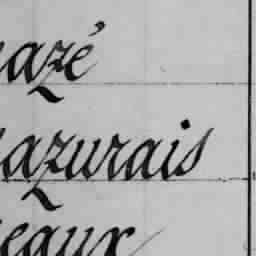 azé
azurais
eaux